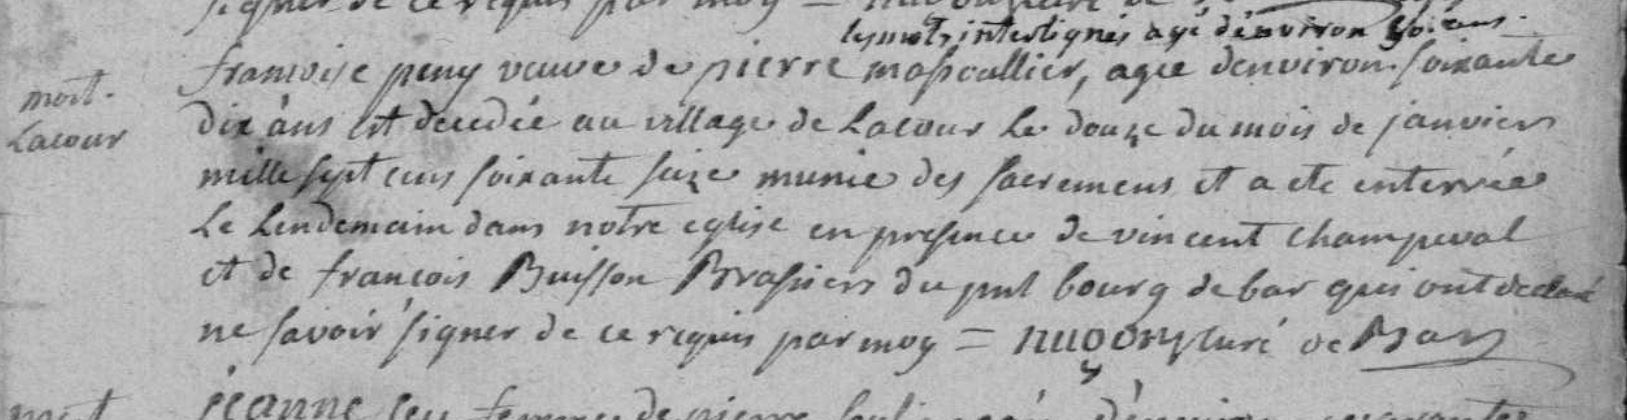 signer de ce requis par moy =
les mots interlignés agé d'environ 50. ans.
francoise peny veuve de pierre mapoullier, agée denviron soixante
mort.
Lacour
dix ans est decedée au village de Lacour Le douze du mois de janvier
mille sept cens soixante seize munie des sacremens et a ete enterrée
Le Lendemain dans notre eglise en presence de vincent champeval
et de francois Buisson Brassiers du pnt bourg de bar qui ont declaré
ne savoir signer de ce requis par moy = curé de Bar
jeanne femme de pierre
mort